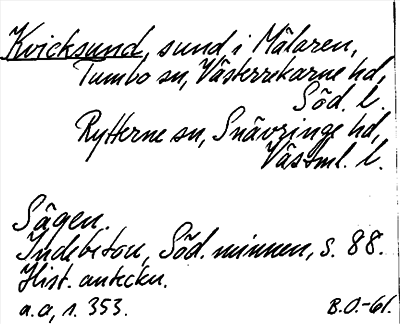 Kvicksund, sund i Mälaren,
Tumbo sn, Västerrekarne hd,
Söd. l.
Rytterne sn, Snävringe hd,
Västml. l.
Sägen.
Indebetou, Söd. minnen, s. 88.
Hist. anteckn.
a.a, s. 353.
B.O.-61.